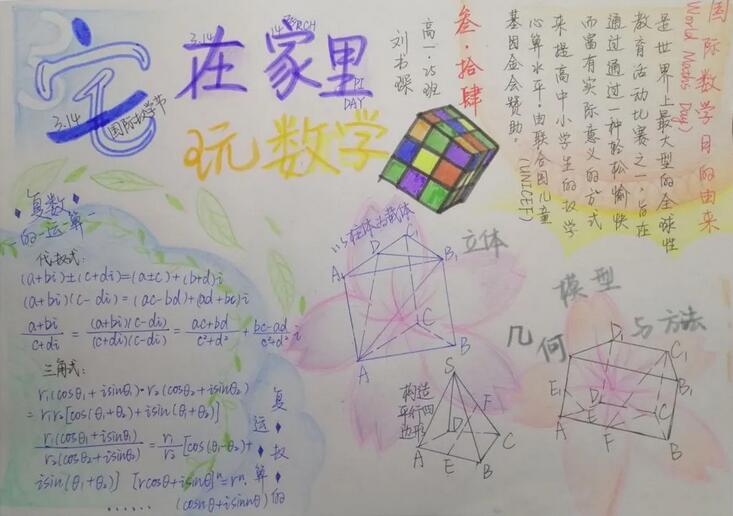 宅在家里
玩数学
3.14
国际数学节
3.14
MARCH
PI
DAY
叁·拾肆
高一·25班
刘书琛
国际数学日的由来
(World Maths Day)
是世界上最大型的全球性
教育活动比赛之一，旨在
通过通过一种轻松愉快
而富有实际意义的方式
来提高中小学生的数学
心算水平！由联合国儿童
基因金会赞助。(UNICEF)
复数
的运算
代数式:
(a+bi)±(c+di)=(a±c)+(b+d)i
(a+bi)(c-di)=(ac-bd)+(ad+bc)i
a+bi/c+di=(a+bi)(c-di)/(c+di)(c-di)=ac+bd/c²+d²+bc-ad/c²+d²i
三角式:
r₁(cosθ₁+isinθ₁)·r₂(cosθ₂+isinθ₂)
=r₁r₂[cos(θ₁+θ₂)+isin(θ₁+θ₂)]
r₁(cosθ₁+isinθ₁)/r₂(cosθ₂+isinθ₂)=r₁/r₂[cos(θ₁-θ₂)+
isin(θ₁+θ₂)] [rcosθ+isinθ]ⁿ=rⁿ
······(cosnθ+isinnθ)
复数的运算
立体
几何
模型
与方法
D
C₁
A₁
B₁
C
A
B
构造
平行四
边形
S
F
D
C
A
E
B
D₁
C₁
B₁
E₁
D
C
A
E
F
B